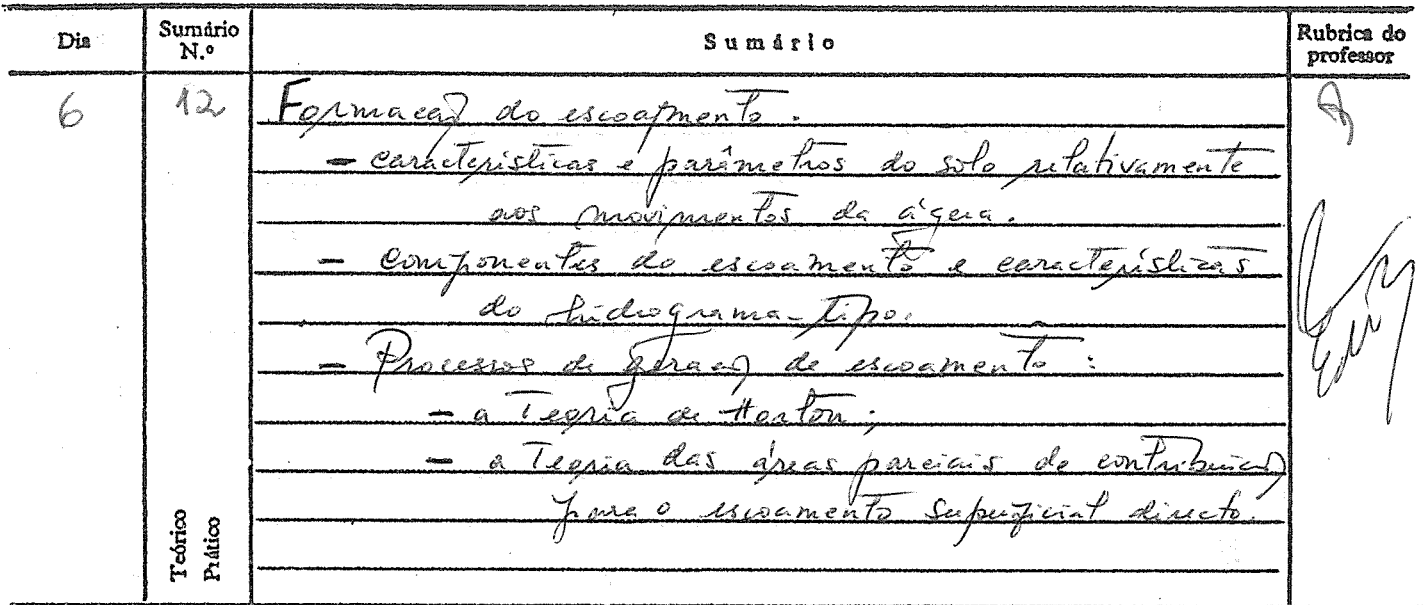 Dia
Sumário N.º
Sumário
Rubrica do professor
6
12
Formação do escoamento.
- características e parâmetros do solo relativamente
aos movimentos da água.
- Componentes do escoamento e características
do hidrograma-tipo.
- Processos de geração de escoamento:
- a Teoria de Horton;
- a Teoria das áreas parciais de contribuição
para o escoamento superficial directo.
Teórico
Prático